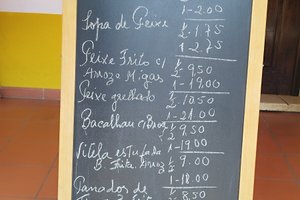 1-2.00
Sopa de Peixe ½ 1.75
1-2.75
Peixe Frito c/ ½ 9,50
Arroz e Migas 1-19,00
Peixe grelhado ½ 10.50
1-21.00
Bacalhau c/ Broa ½ 9,50
1-19,00
Vitela estufada ½ 9.00
B. Frita, Arroz
1-18.00
Panados de ½ 8.50